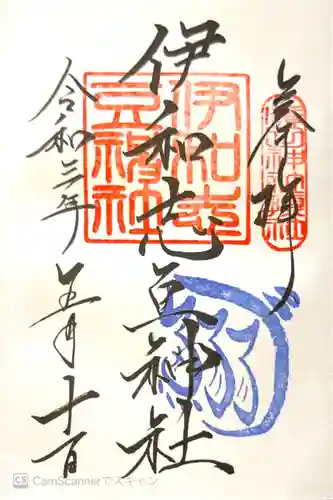 奉拝
伊和志豆神社
伊和志豆神社
令和三年
五月十一日
CS CamScannerでスキャン